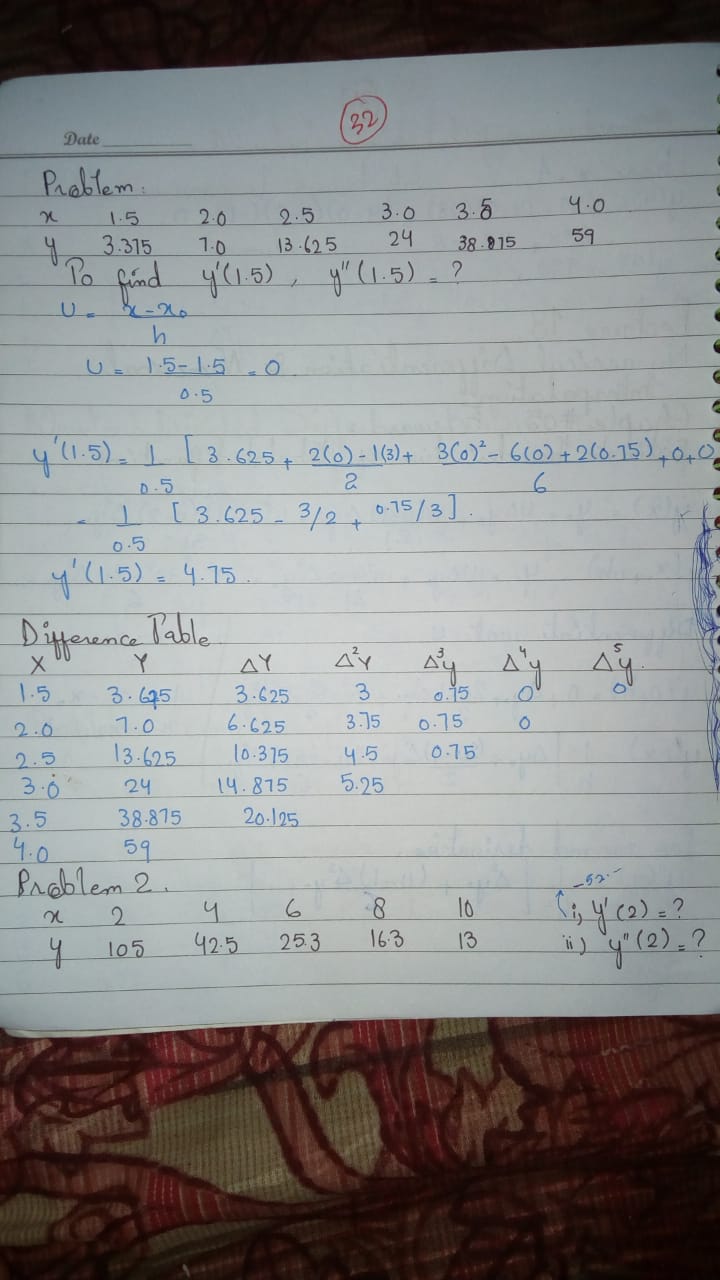 32
Date
Problem:
x 1.5 2.0 2.5 3.0 3.5 4.0
y 3.375 7.0 13.625 24 38.875 59
To find y'(1.5), y''(1.5) = ?
U = x-x₀
h
U = 1.5-1.5 = 0
0.5
y'(1.5) = 1 [ 3.625 + 2(0)-1(3) + 3(0)²-6(0)+2(0.75) +0+0
0.5 2 6
= 1 [ 3.625 - 3/2 + 0.75/3 ].
0.5
y'(1.5) = 4.75.
Difference Table
X Y ΔY Δ²Y Δ³y Δ⁴y Δ⁵y.
1.5 3.675 3.625 3 0.75 0 0
2.0 7.0 6.625 3.75 0.75 0
2.5 13.625 10.375 4.5 0.75
3.0 24 14.875 5.25
3.5 38.875 20.125
4.0 59
Problem 2.
-52.-
x 2 4 6 8 10 i, y'(2) = ?
y 105 42.5 25.3 16.3 13 ii) y''(2) = ?